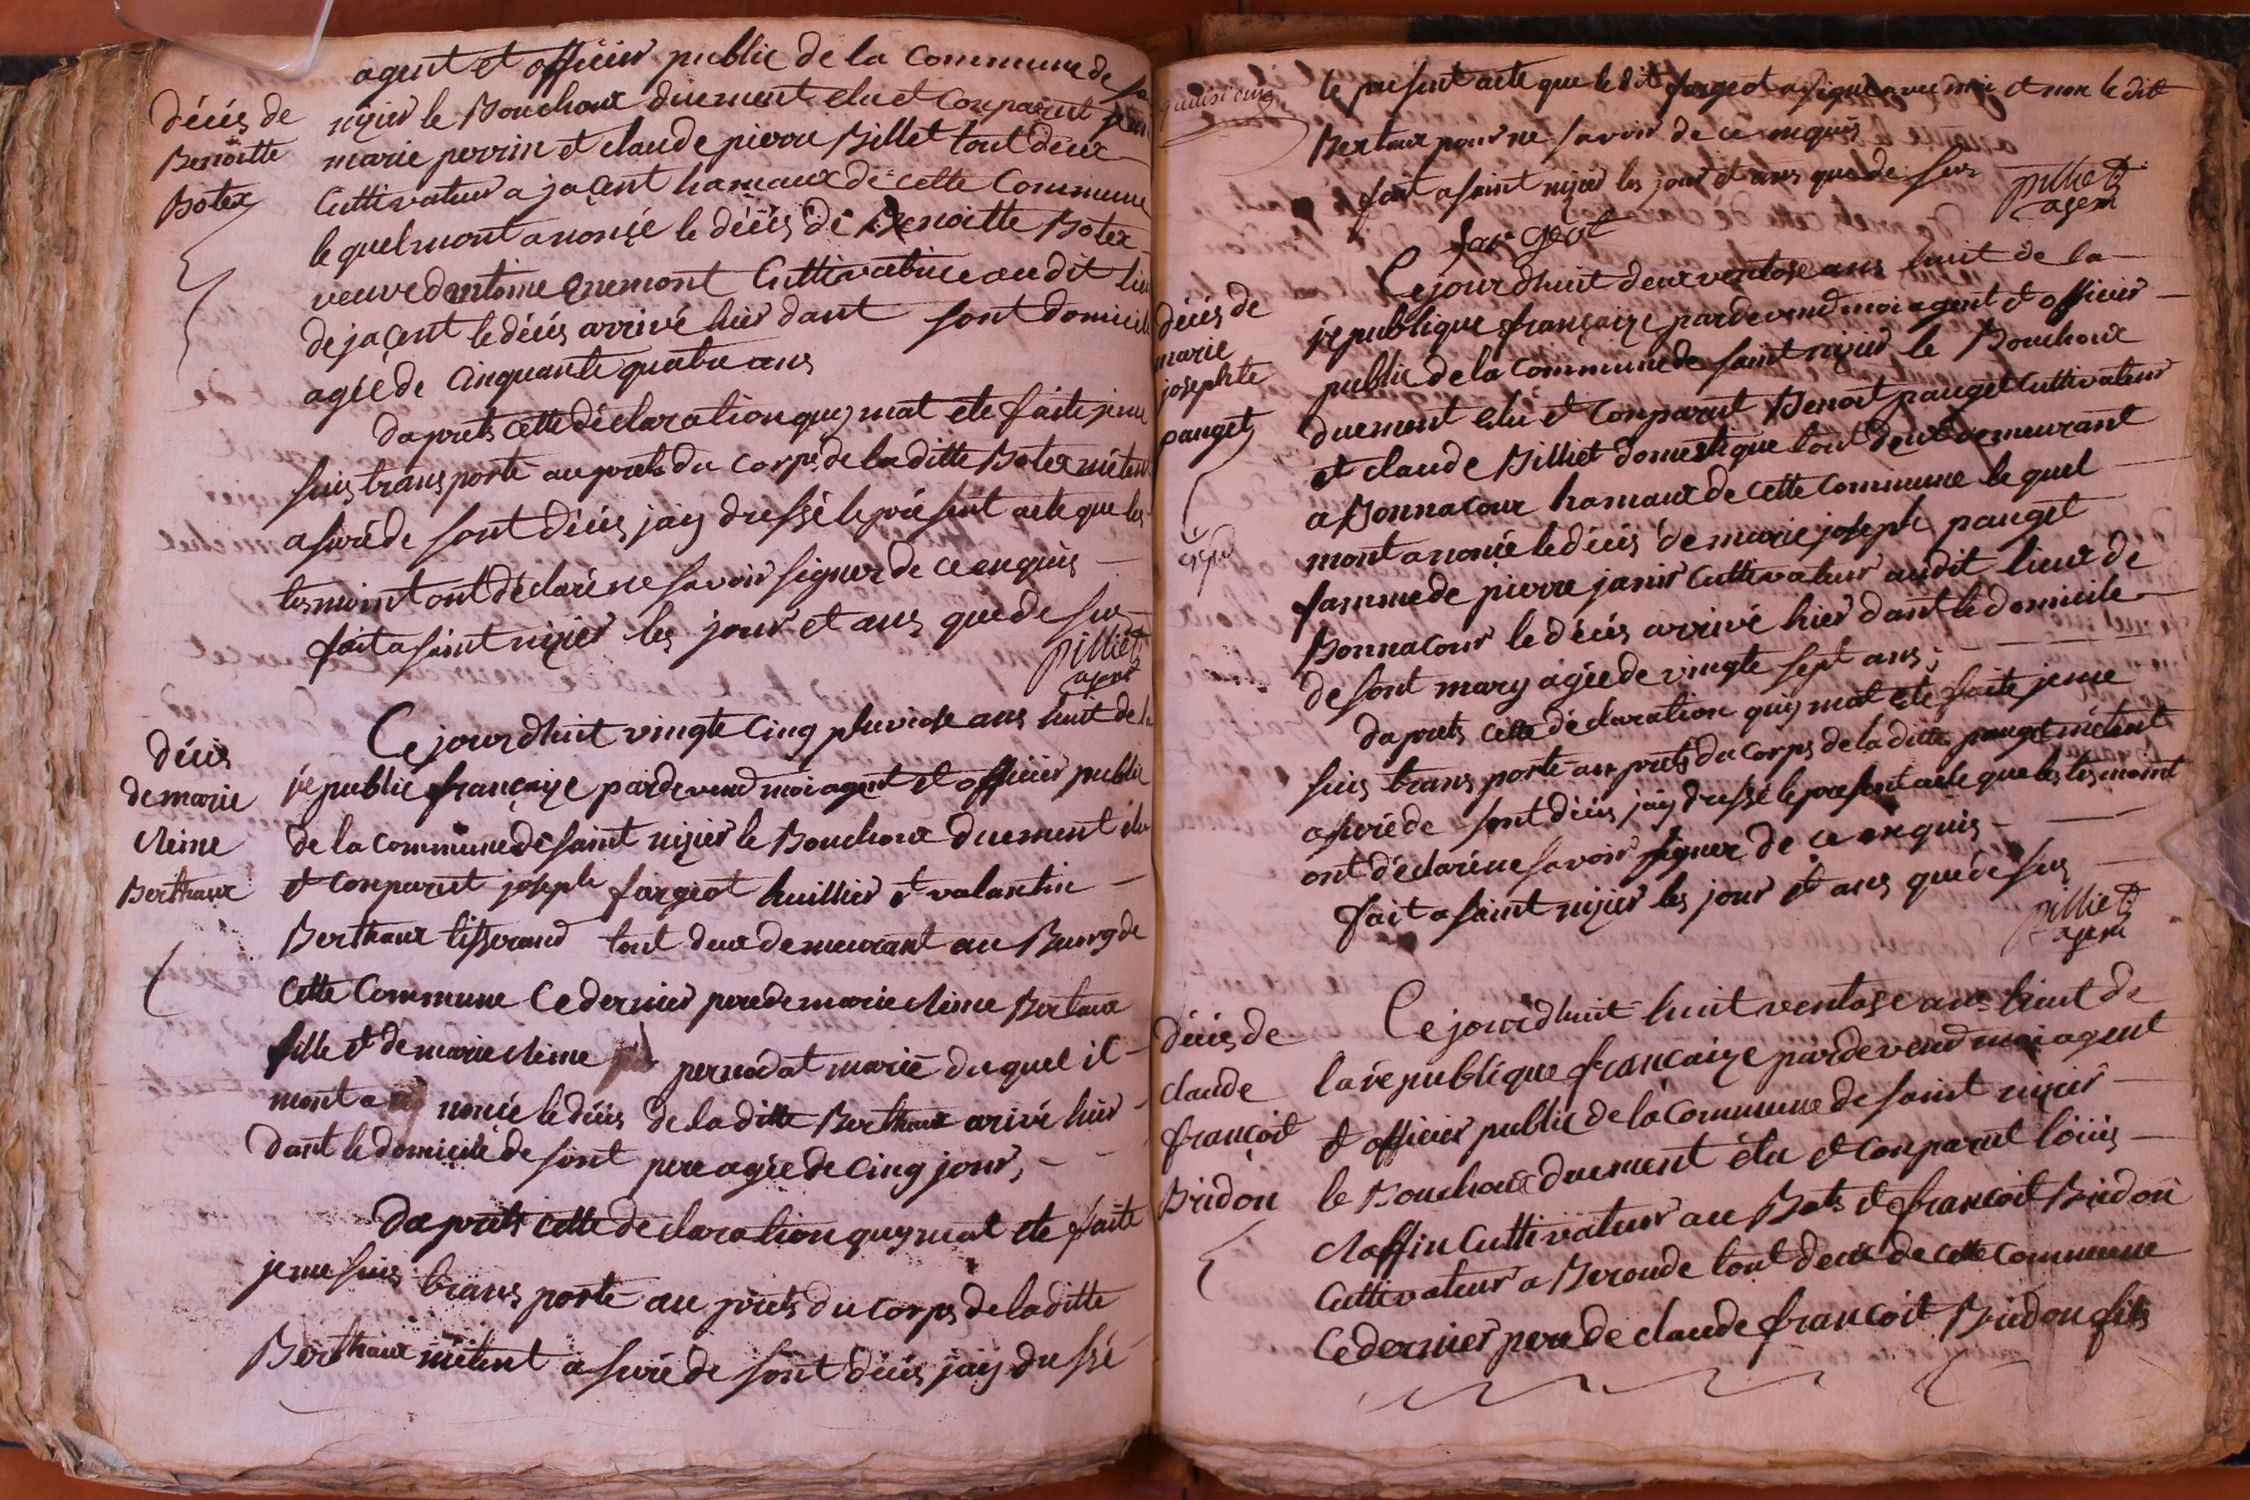 agent et officier public de la Commune de
décès de
Benoitte
Botex
nizier le Bouchoux duement elu et Conparut
marie perrin et claude pierre Billet tout deux
Cultivateur a jacent hameaux de cette Commune
le quel mont anoncé le décès de Benoitte Botex
veuve dantoine Cultivatrice audit lieu
de jacent le décès arrivé hier dant sont domicile
agée de Cinquante quatre ans
daprets cette déclaration quy mat ete faite je me
suis trans porté au prets du corps de laditte Botex métent
asuré de sont décès jay dressé le présent acte que les
tesmoint ont déclaré ne savoir signer de ce enquis
fait a saint nizier les jour et ans que de sus
pilliet
agent
décès
de marie
Berthaux
Ce jourdhuit vingte cinq pluviose ans huit de la
république françaize pardevend moi agent et officier public
de la commune de saint nizier le Bouchoux duement élu
et conparut joseph fargeot huillier et valantin
Berthaux tisserand tout deux demeurant au Bourg de
cette Commune Ce dernier pere de marie Bertaux
fille et de marie marié duquel il
mont a noncé le décès de laditte Berthaux arivé hier
dant le domicile de sont pere agée de cinq jour,
daprets cette declaration quy mat ete faite
je me suis trans porté au prets du corps de laditte
Berthaux métent asuré de sont décès jay dressé
le present acte que le dit fargeot a signé avec moi et non le dit
Bertaux pour ne savoir de ce enquis
fait a saint nizier les jour et ans que de sus
pilliet
agent
fargeot
décès de
marie
josephte
pauget
Ce jourdhuit deux ventose ans huit de la
république françaize pardevend moi agent et officier
public de la commune de saint nizier le Bouchoux
duement elu et Conparut Benoit pauget Cultivateur
et claude Billiet domestique tout deux demeurant
a Bonnacour hamaux de cette commune le quel
mont anoncé le décès de marie joseph pauget
famme de pierre janin Cultivateur audit lieux de
Bonnacour le décès arrivé hier dant le domicile
de sont mary agée de vingte sept ans;
daprets cette déclaration quy mat ete faite je me
suis trans porté au prets du corps de laditte pauget métent
asuré de sont décès jay dressé le present acte que les tesmoint
ont déclaré ne savoir signer de ce enquis
fait a saint nizier les jour et ans que de sus
pilliet
agent
décès de
claude
françoit
Bridon
Ce jourdhuit huit ventose ans huit de
la république françaize pardevend moi agent
et officier public de la commune de saint nizier
le Bouchoux duement élu et Conparut loüis
Cultivateur au Bots et françoit Bridon
Cultivateur a Beroude tout deux de cette commune
Ce dernier pere de claude françoit Bridon fils